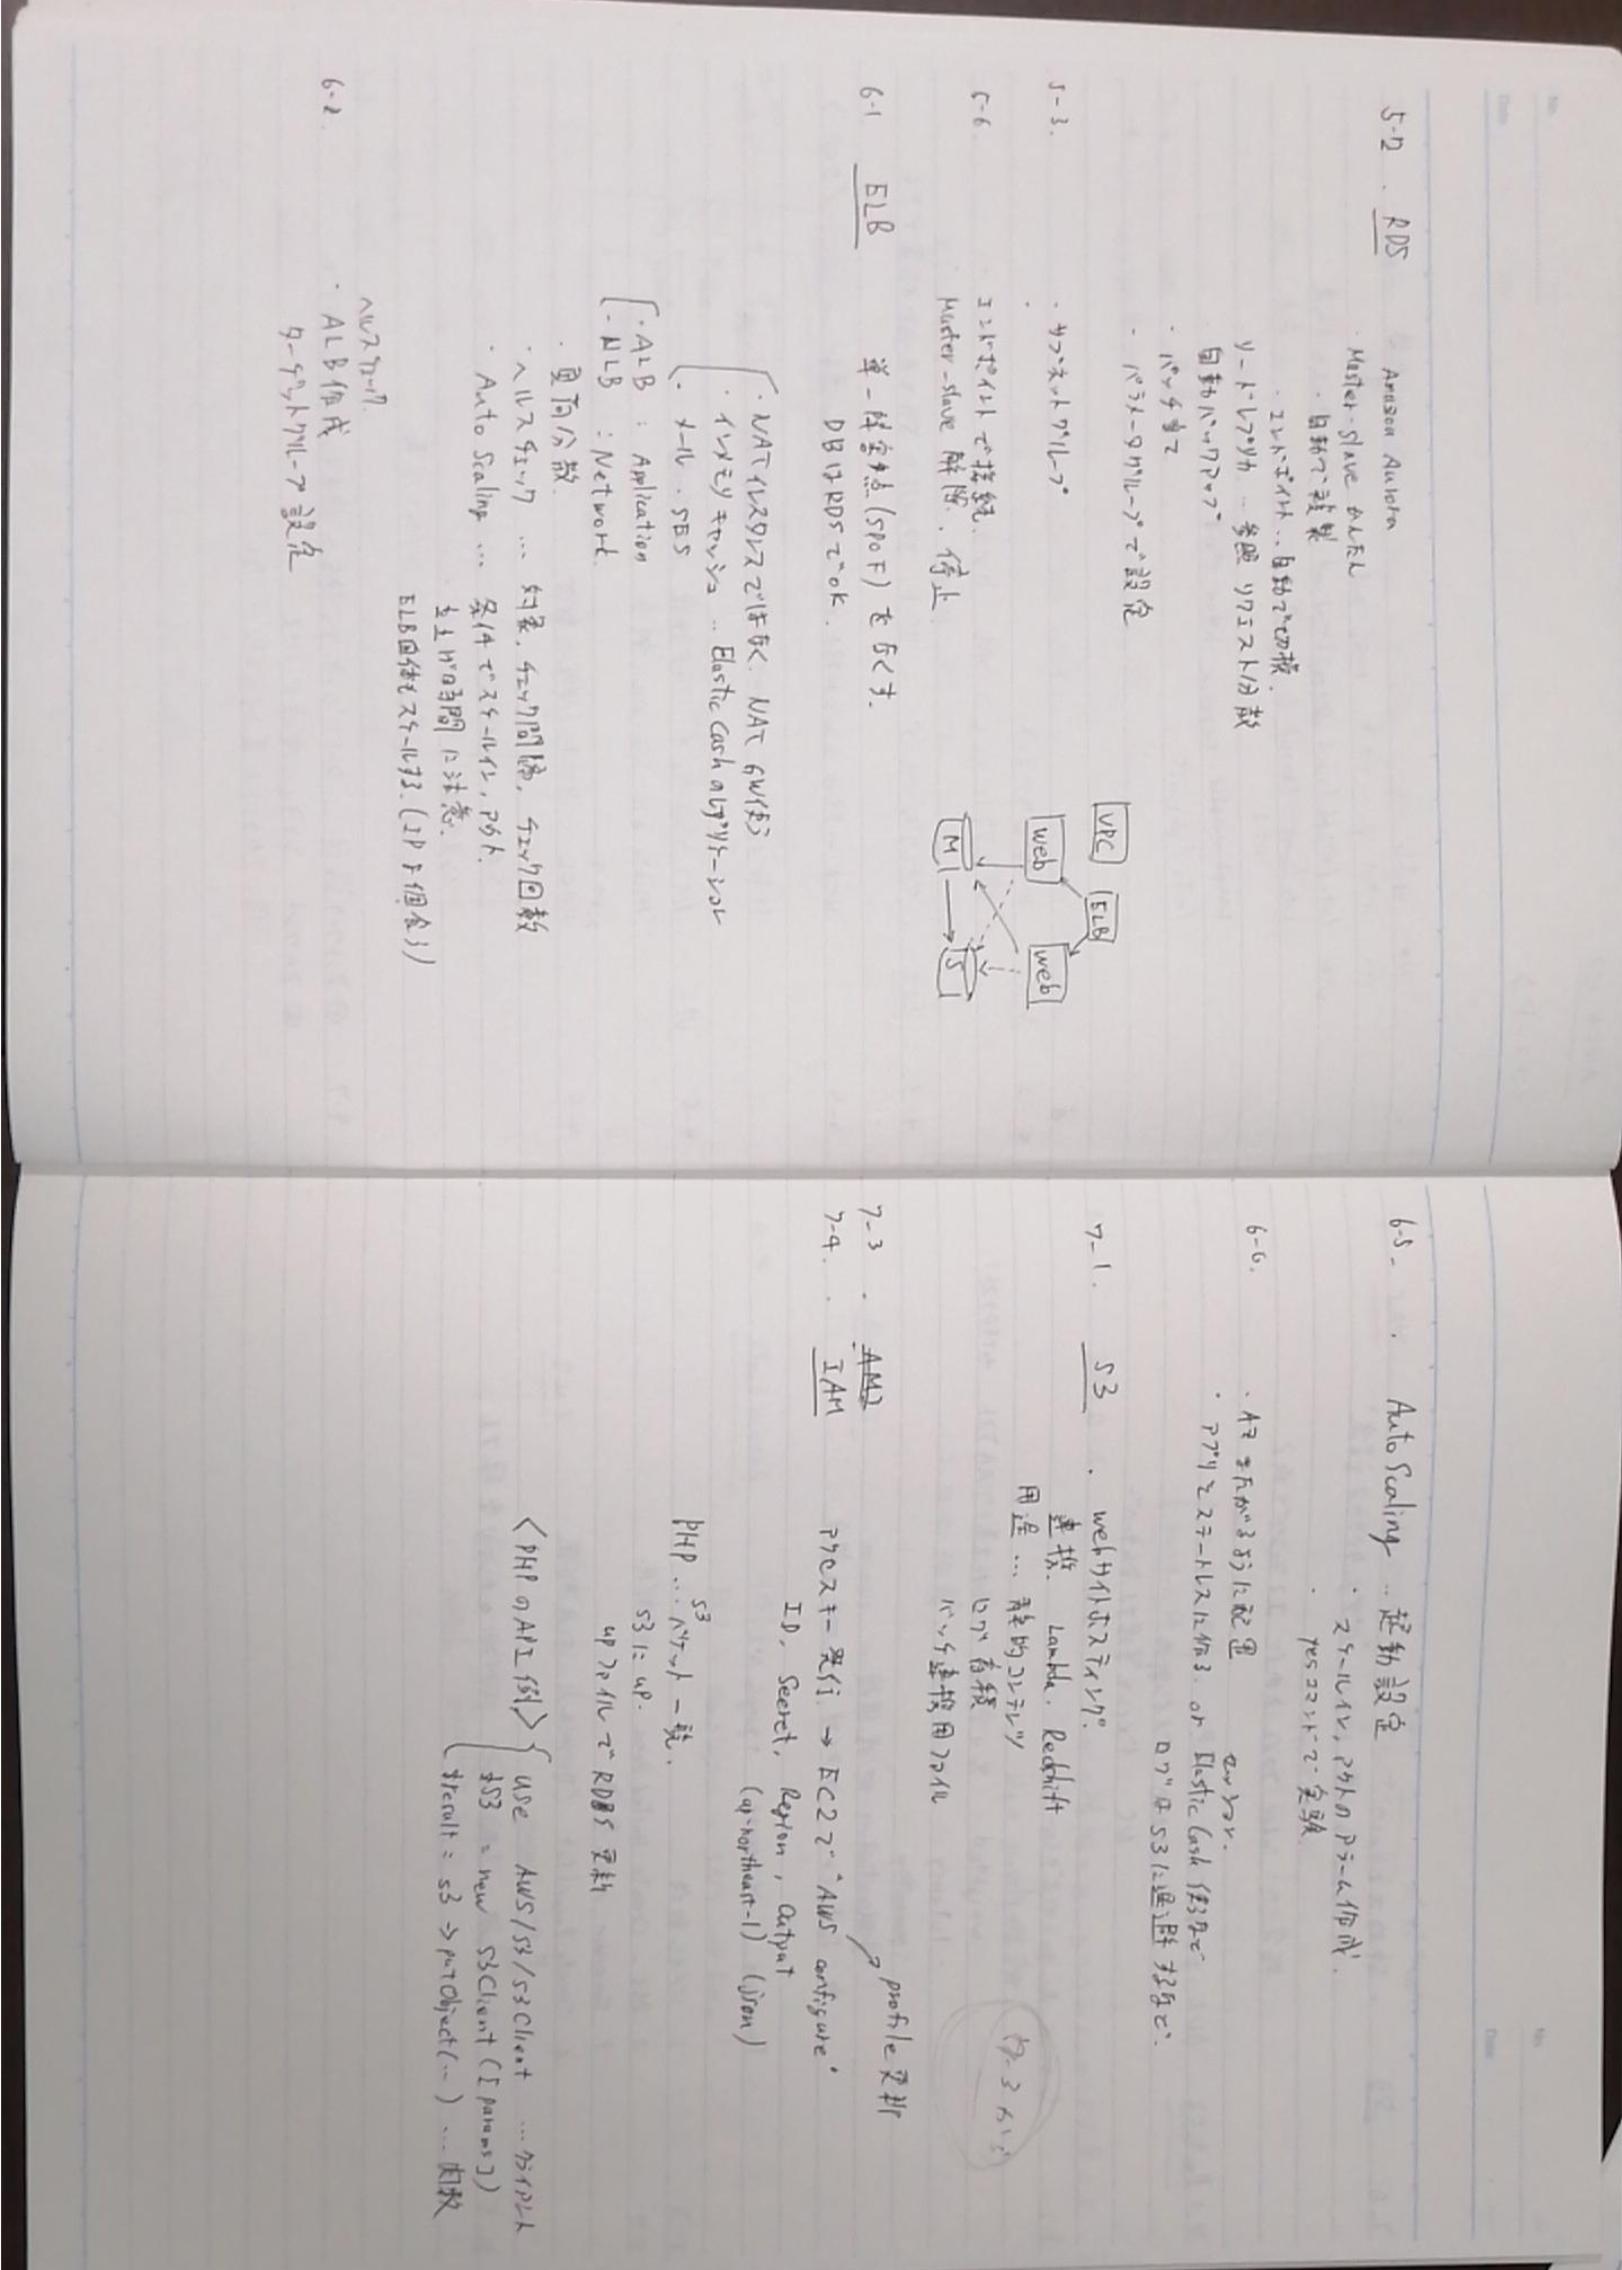 5-2. RDS
Amazon Aurora
・Master-slave かんたん
・自動で複製
・エンドポイント‥自動で切換.
リードレプリカ ‥ 参照リクエスト分散
自動バックアップ
・パッチ当て
・パラメータグループで設定
5-3.
・サブネットグループ
5-6.
・エンドポイントで接続.
・Master-slave 解除、停止
VPC
ELB
web
web
M
S
6-1 ELB
単一障害点(SPOF)をなくす.
DBはRDSでOK.
・NATインスタンスではなく、NAT GW使う
・インメモリキャッシュ‥ElasticCash のレプリケーション
・メール.SES
・ALB : Application
・NLB : Network
・負荷分散.
・ヘルスチェック … 対象, チェック間隔, チェック回数
・Auto Scaling … 条件でスケールイン,アウト.
立上げ時間に注意.
ELB自体もスケールする.(IPを個食う)
ヘルスチェック.
6-2.
・ALB作成
ターゲットグループ設定
6-5. ・ AutoScaling ‥ 起動設定
・スケールイン,アウトのアラーム作成.
・yesコマンドで実験
6-6.
・AZまたがるように配置
セッション.
・アプリをステートレスに作る. or ElasticCash使うなど
ログはS3に退避するなど.
7-1. S3
・webサイトホスティング.
連携. Lambda. Redshift
用途 … 静的コンテンツ
ログ蓄積
バッチ連携用ファイル
7-3から
7-3 ・ AMI
7-4. ・ IAM
アクセスキー発行. → EC2で"AWS configure"
profile更新
ID, Secret, Region, Output
(ap-northeast-1) (json)
PHP‥S3バケット一覧.
S3にup.
upファイルでRDBS更新
<PHPのAPI例>
use AWS/S3/S3Client … クライアント
$S3 = new S3Client([params])
$result = S3->putObject(…) … 関数